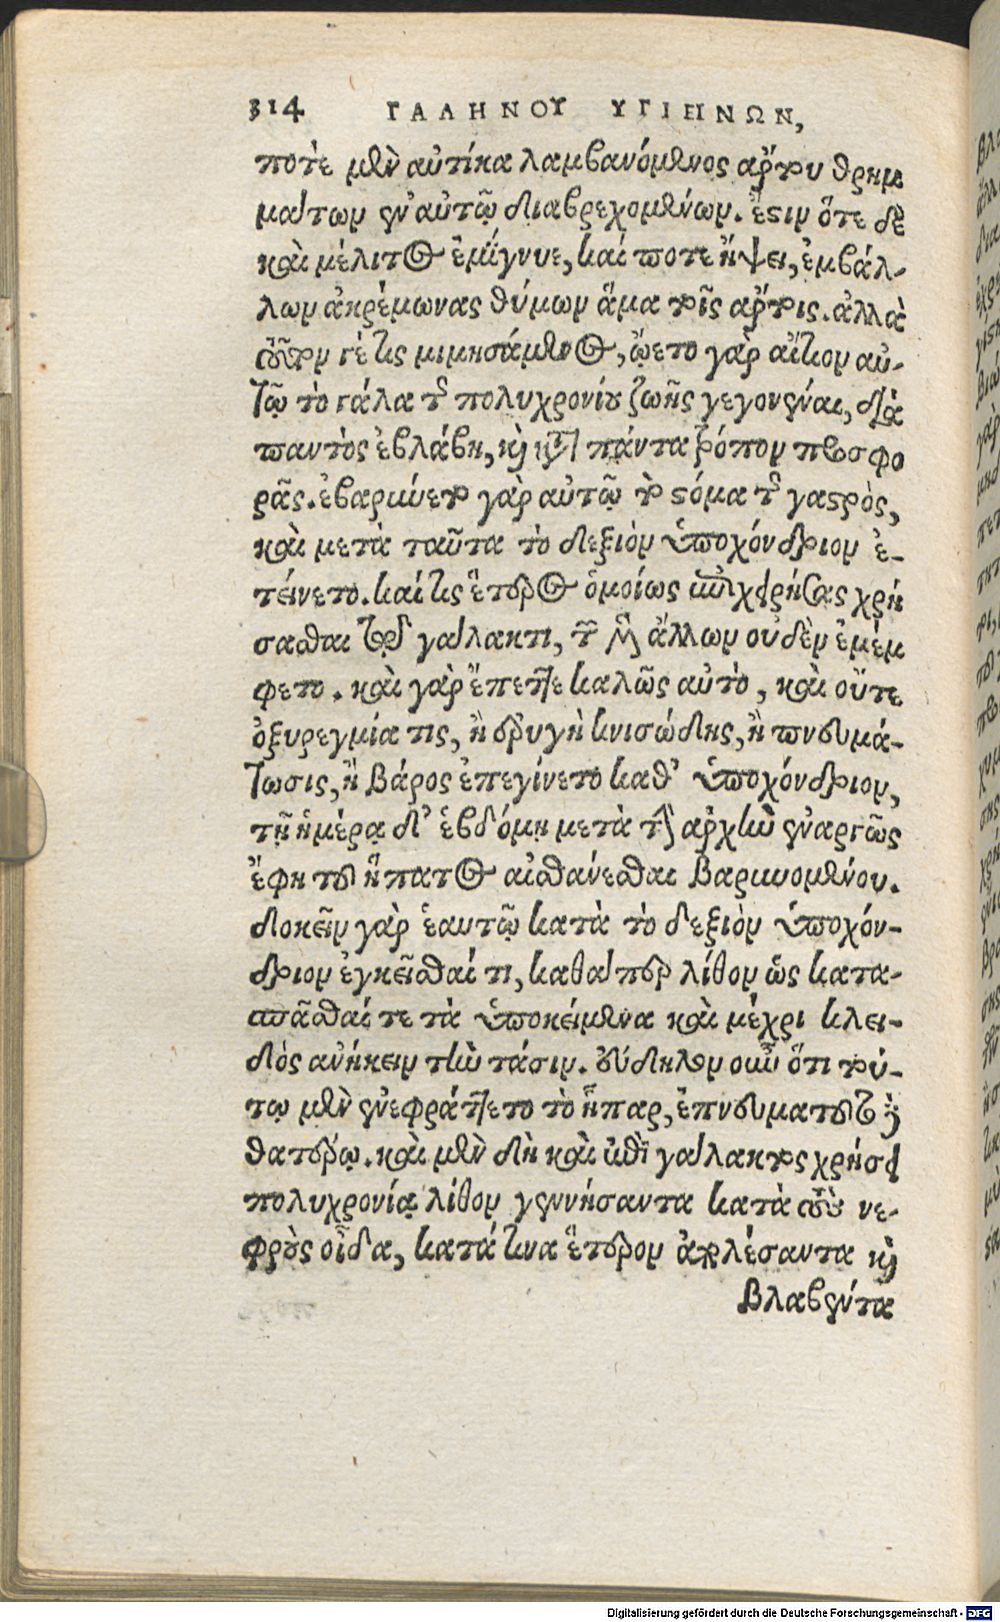 314 ΓΑΛΗΝΟΥ ΥΓΙΕΙΝΩΝ,
ποτὲ μὲν αὐτίκα λαμβανόμενος ἄρτου θρημ
μάτων ἐν αὐτῷ διαβρεχομένων. ἔστιν ὅτε δὲ
καὶ μέλιτος ἐμίγνυε, καί ποτε ἥψει, ἐμβάλ-
λων ἀκρέμωνας θύμων ἅμα τοῖς ἄρτοις. ἀλλὰ
τοῦτόν γέ τις μιμησάμενος, ᾤετο γὰρ αἴτιον αὐ-
τῷ τὸ γάλα τῆς πολυχρονίου ζωῆς γεγονέναι, διὰ
παντὸς ἐβλάβη, καὶ κατὰ πάντα τρόπον προσφο
ρᾶς. ἐβαρύνετο γὰρ αὐτῷ τὸ στόμα τῆς γαστρὸς,
καὶ μετὰ ταῦτα τὸ δεξιὸν ὑποχόνδριον ἐ-
τείνετο. καί τις ἕτερος ὁμοίως ἐπιχειρήσας χρή
σασθαι τῷ γάλακτι, τῶν μὲν ἄλλων οὐδὲν ἐμέμ
φετο. καὶ γὰρ ἔπεττε καλῶς αὐτὸ, καὶ οὔτε
ὀξυρεγμία τις, ἢ ἐρυγὴ κνισώδης, ἢ πνευμά-
τωσις, ἢ βάρος ἐπεγίνετο καθ' ὑποχόνδριον,
τῇ ἡμέρᾳ δ' ἑβδόμῃ μετὰ τὴν ἀρχὴν ἐναργῶς
ἔφη τοῦ ἥπατος αἰσθάνεσθαι βαρυνομένου.
δοκεῖν γὰρ ἑαυτῷ κατὰ τὸ δεξιὸν ὑποχόν-
δριον ἐγκεῖσθαί τι, καθάπερ λίθον ὡς κατα-
σπᾶσθαί τε τὰ ὑποκείμενα καὶ μέχρι κλει-
δὸς ἀνήκειν τὴν τάσιν. εὔδηλον οὖν ὅτι τού-
τῳ μὲν ἐνεφράττετο τὸ ἧπαρ, ἐπνευματοῦτο δὲ
θατέρῳ. καὶ μὲν δὴ καὶ ἐπὶ γάλακτος χρήσει
πολυχρονίᾳ λίθον γεννήσαντα κατὰ τοὺς νε-
φροὺς οἶδα, κατά τινα ἕτερον ἀπολέσαντα καὶ
βλαβέντα
Digitalisierung gefördert durch die Deutsche Forschungsgemeinschaft - DFG